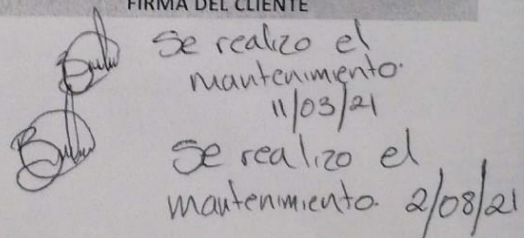 FIRMA DEL CLIENTE
Se realizo el
mantenimiento.
11/03/21
Se realizo el
mantenimiento. 2/08/21